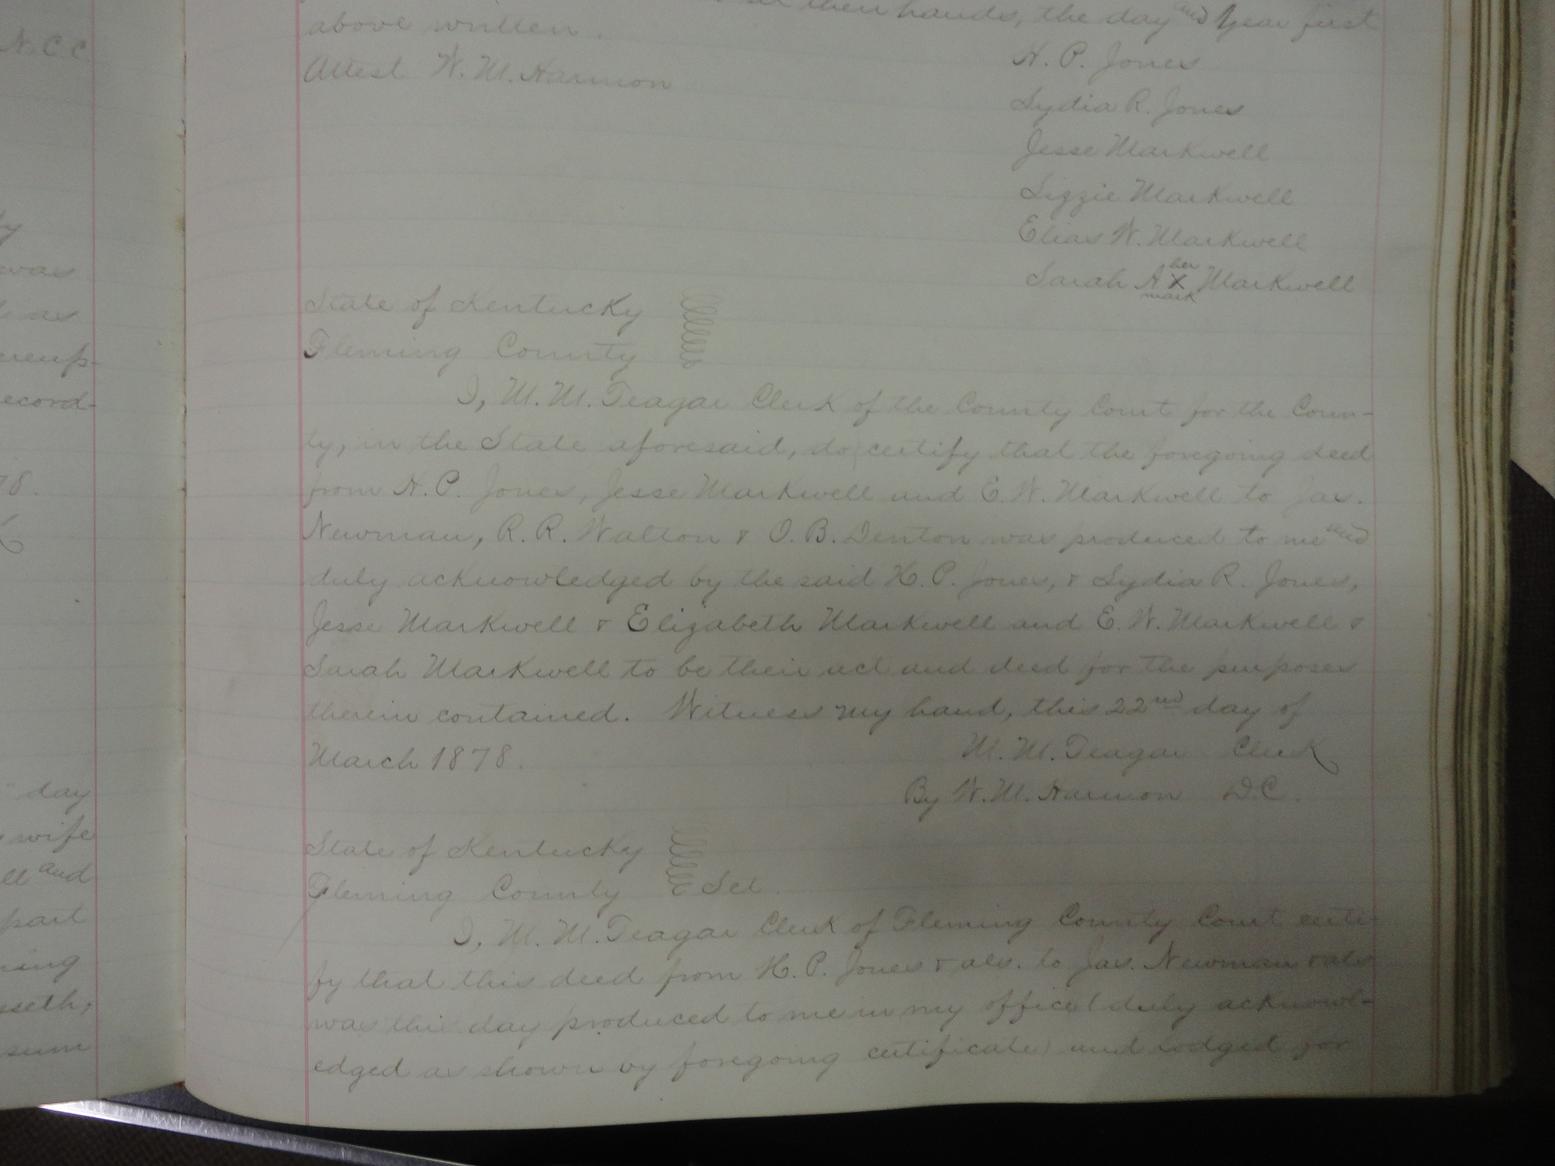 N.C.C.
was
record-
78.
day
wife
ll and
part
ning
sseth,
sum
their hands, the day and year first
above written.
Attest W. M. Harmon
H. P. Jones
Lydia R. Jones
Jesse Markwell
Lizzie Markwell
Elias W. Markwell
Sarah A her X mark Markwell
State of Kentucky
Fleming County
I, M. M. Teagar Clerk of the County Court for the Coun-
ty, in the State aforesaid, do certify that the foregoing deed
from H. P. Jones, Jesse Markwell and E. W. Markwell to Jas.
Newman, R. R. Walton & O. B. Denton was produced to me and
duly acknowledged by the said H. P. Jones, & Lydia R. Jones,
Jesse Markwell & Elizabeth Markwell and E. W. Markwell &
Sarah Markwell to be their act and deed for the purposes
therein contained. Witness my hand, this 22nd day of
March 1878.
M. M. Teagar Clerk
By W. M. Harmon D.C.
State of Kentucky
Fleming County Sct.
I, M. M. Teagar Clerk of Fleming County Court certi-
fy that this deed from H. P. Jones & als. to Jas. Newman & als
was this day produced to me in my office (duly acknowl-
edged as shown by foregoing certificate) and lodged for